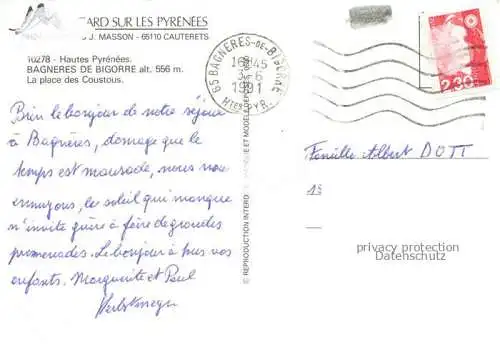 ARD SUR LES PYRÉNÉES
J. MASSON - 65110 CAUTERETS
10278 - Hautes Pyrénées.
BAGNERES DE BIGORRE alt. 556 m.
La place des Coustous.
65 BAGNERES-DE-BIGORRE
16H45
3-6
1991
HTES PYR.
2,30
Bien le bonjour de notre séjour
à Bagnères, domage que le
temps est maussade, nous nous
ennuyons, le soleil qui manque
n'invite guère à faire de grandes
promenades. Le bonjour à tous vos
enfants. Marguerite et Paul
Famille Albert DOTT
13
privacy protection
Datenschutz
© REPRODUCTION INTERD